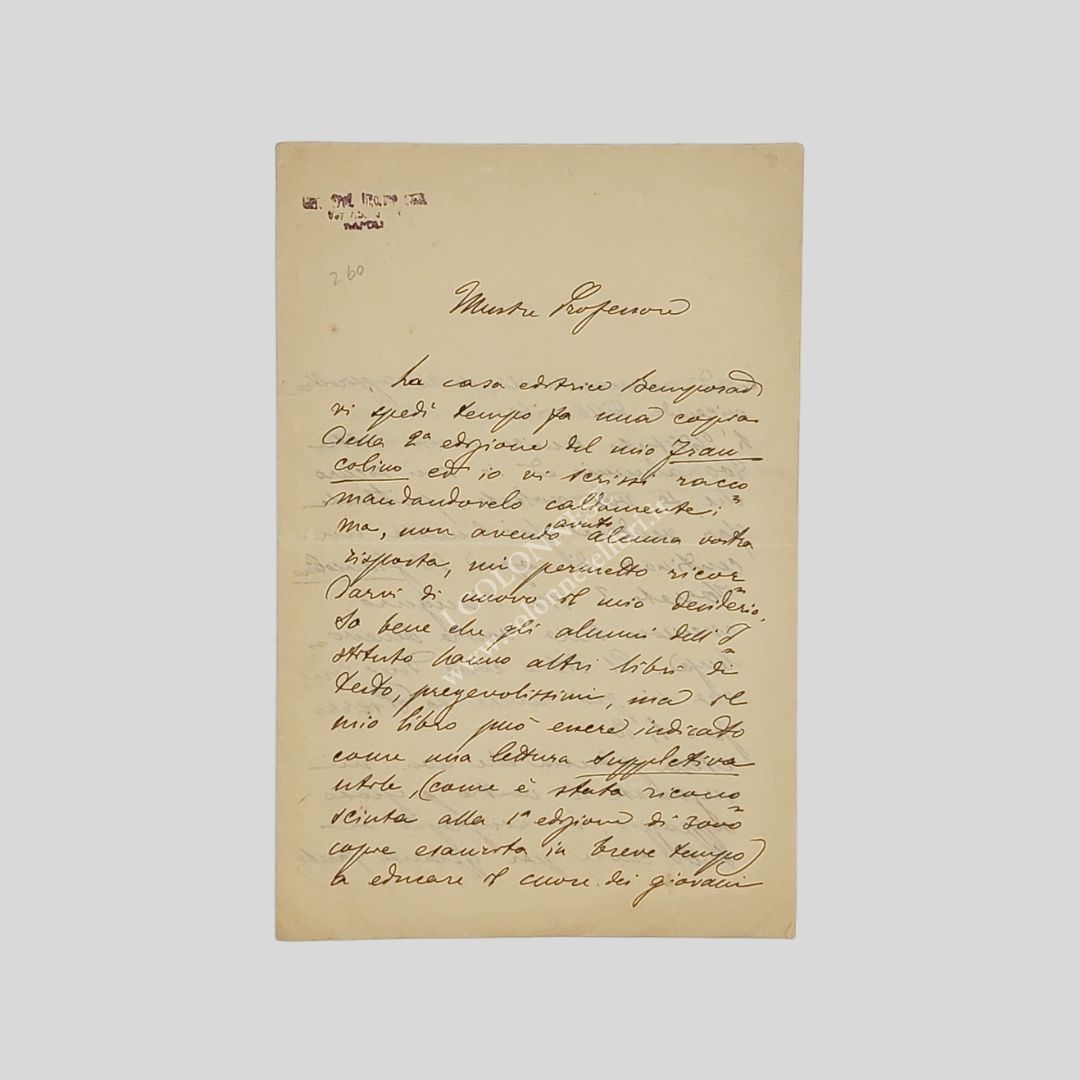 NAPOLI
260
Illustre Professore
La casa editrice Bemporad
vi spedì tempo fa una copia
della 2ª edizione del mio Fran
colino ed io vi scrissi racco
mandandovelo caldamente;
ma, non avendo avuto alcuna vostra
risposta, mi permetto ricor
darvi di nuovo il mio desiderio.
So bene che gli alunni dell'I
stituto hanno altri libri di
testo, pregevolissimi, ma il
mio libro può essere indicato
come una lettura suppletiva
utile, (come è stata ricono
sciuta alla 1ª edizione di 3000
copie esaurita in breve tempo)
a educare il cuore dei giovani
I COLONNESE
www.colonneseeditori.it